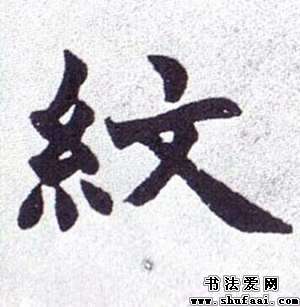 紋
书法爱网
www.shufaai.com